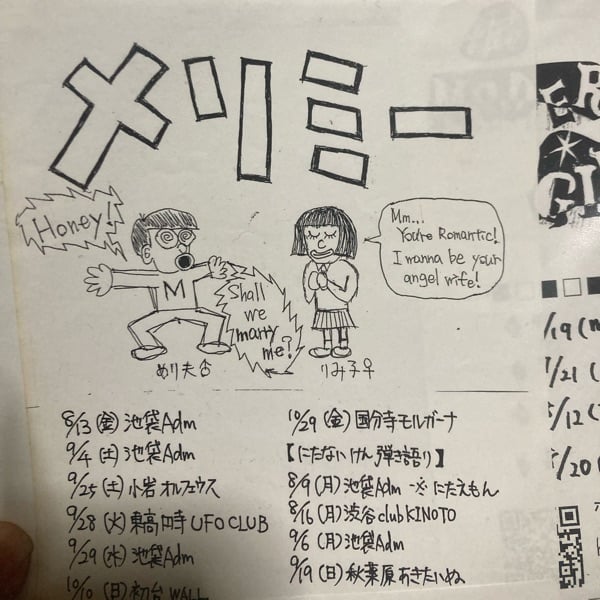 メリミー
Honey!
Shall
we
marry
me?
Mm...
You're Romantic!
I wanna be your
angel wife!
M
めり夫
りみ子
8/13(金)池袋Adm
9/4(土)池袋Adm
9/25(土)小岩オルフェウス
9/28(火)東高円寺UFO CLUB
9/29(水)池袋Adm
10/10(日)初台WALL
10/29(金)国分寺モルガーナ
【にたないけん弾き語り】
8/9(月)池袋Adm ※にたえもん
8/16(月)渋谷club KINOTO
9/6(月)池袋Adm
9/19(日)秋葉原あきたいぬ
/19(
/21(
/12(
/20(